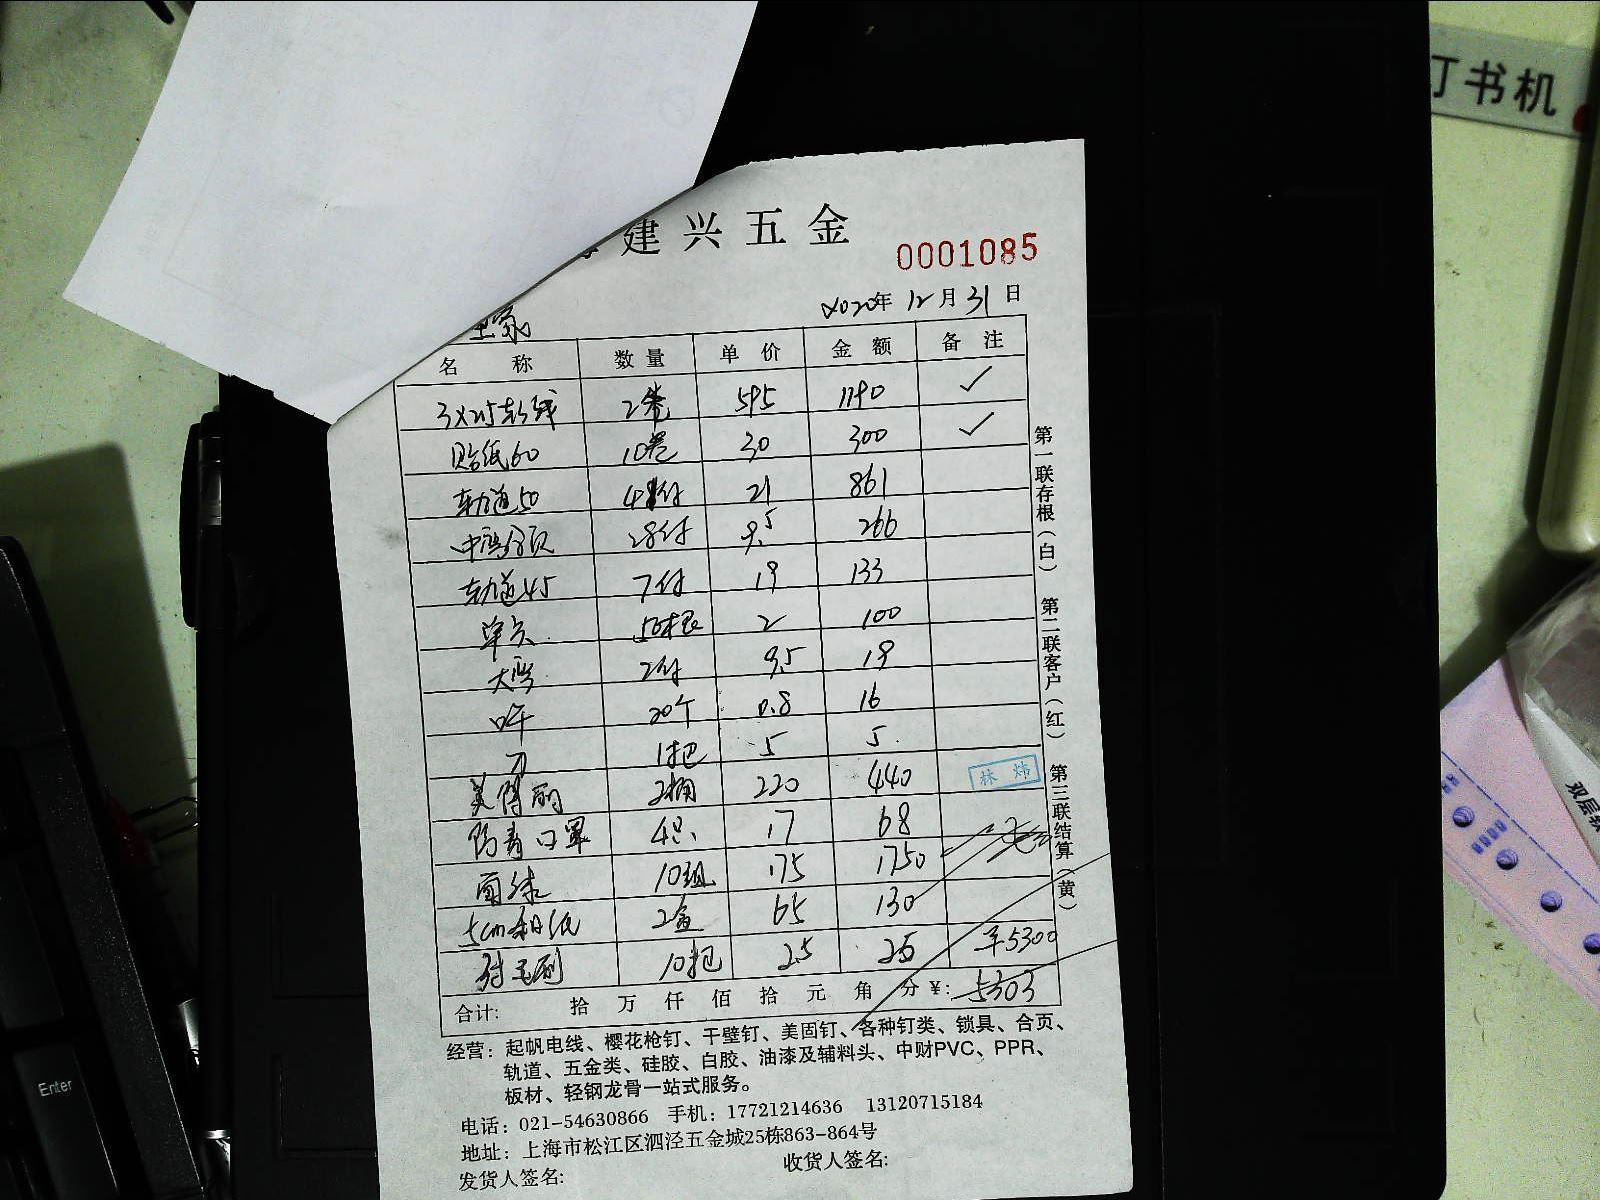 订书机
建兴五金
0001085
2020年 12月 31日
名 称 数量 单价 金额 备注
3×2.5软线 2卷 595 1190 ✓
贴纸60 10卷 30 300 ✓
轨道50 41付 21 861
中弯合页 28付 9.5 266
轨道45 7付 19 133
50根 2 100
大弯 2付 9.5 19
20个 0.8 16
刀 1把 5 5
美得丽 2桶 220 440
林炜
防毒口罩 4只 17 68
10组 175 1750
5cm和纸 2盒 65 130
毛刷 10把 2.5 25
¥5300
合计: 拾 万 仟 佰 拾 元 角 分 ¥: 5303
第一联存根(白) 第二联客户(红) 第三联结算(黄)
经营: 起帆电线、樱花枪钉、干壁钉、美固钉、各种钉类、锁具、合页、
轨道、五金类、硅胶、白胶、油漆及辅料头、中财PVC、PPR、
板材、轻钢龙骨一站式服务。
电话: 021-54630866 手机: 17721214636 13120715184
地址: 上海市松江区泗泾五金城25栋863-864号
发货人签名: 收货人签名:
Enter
双层